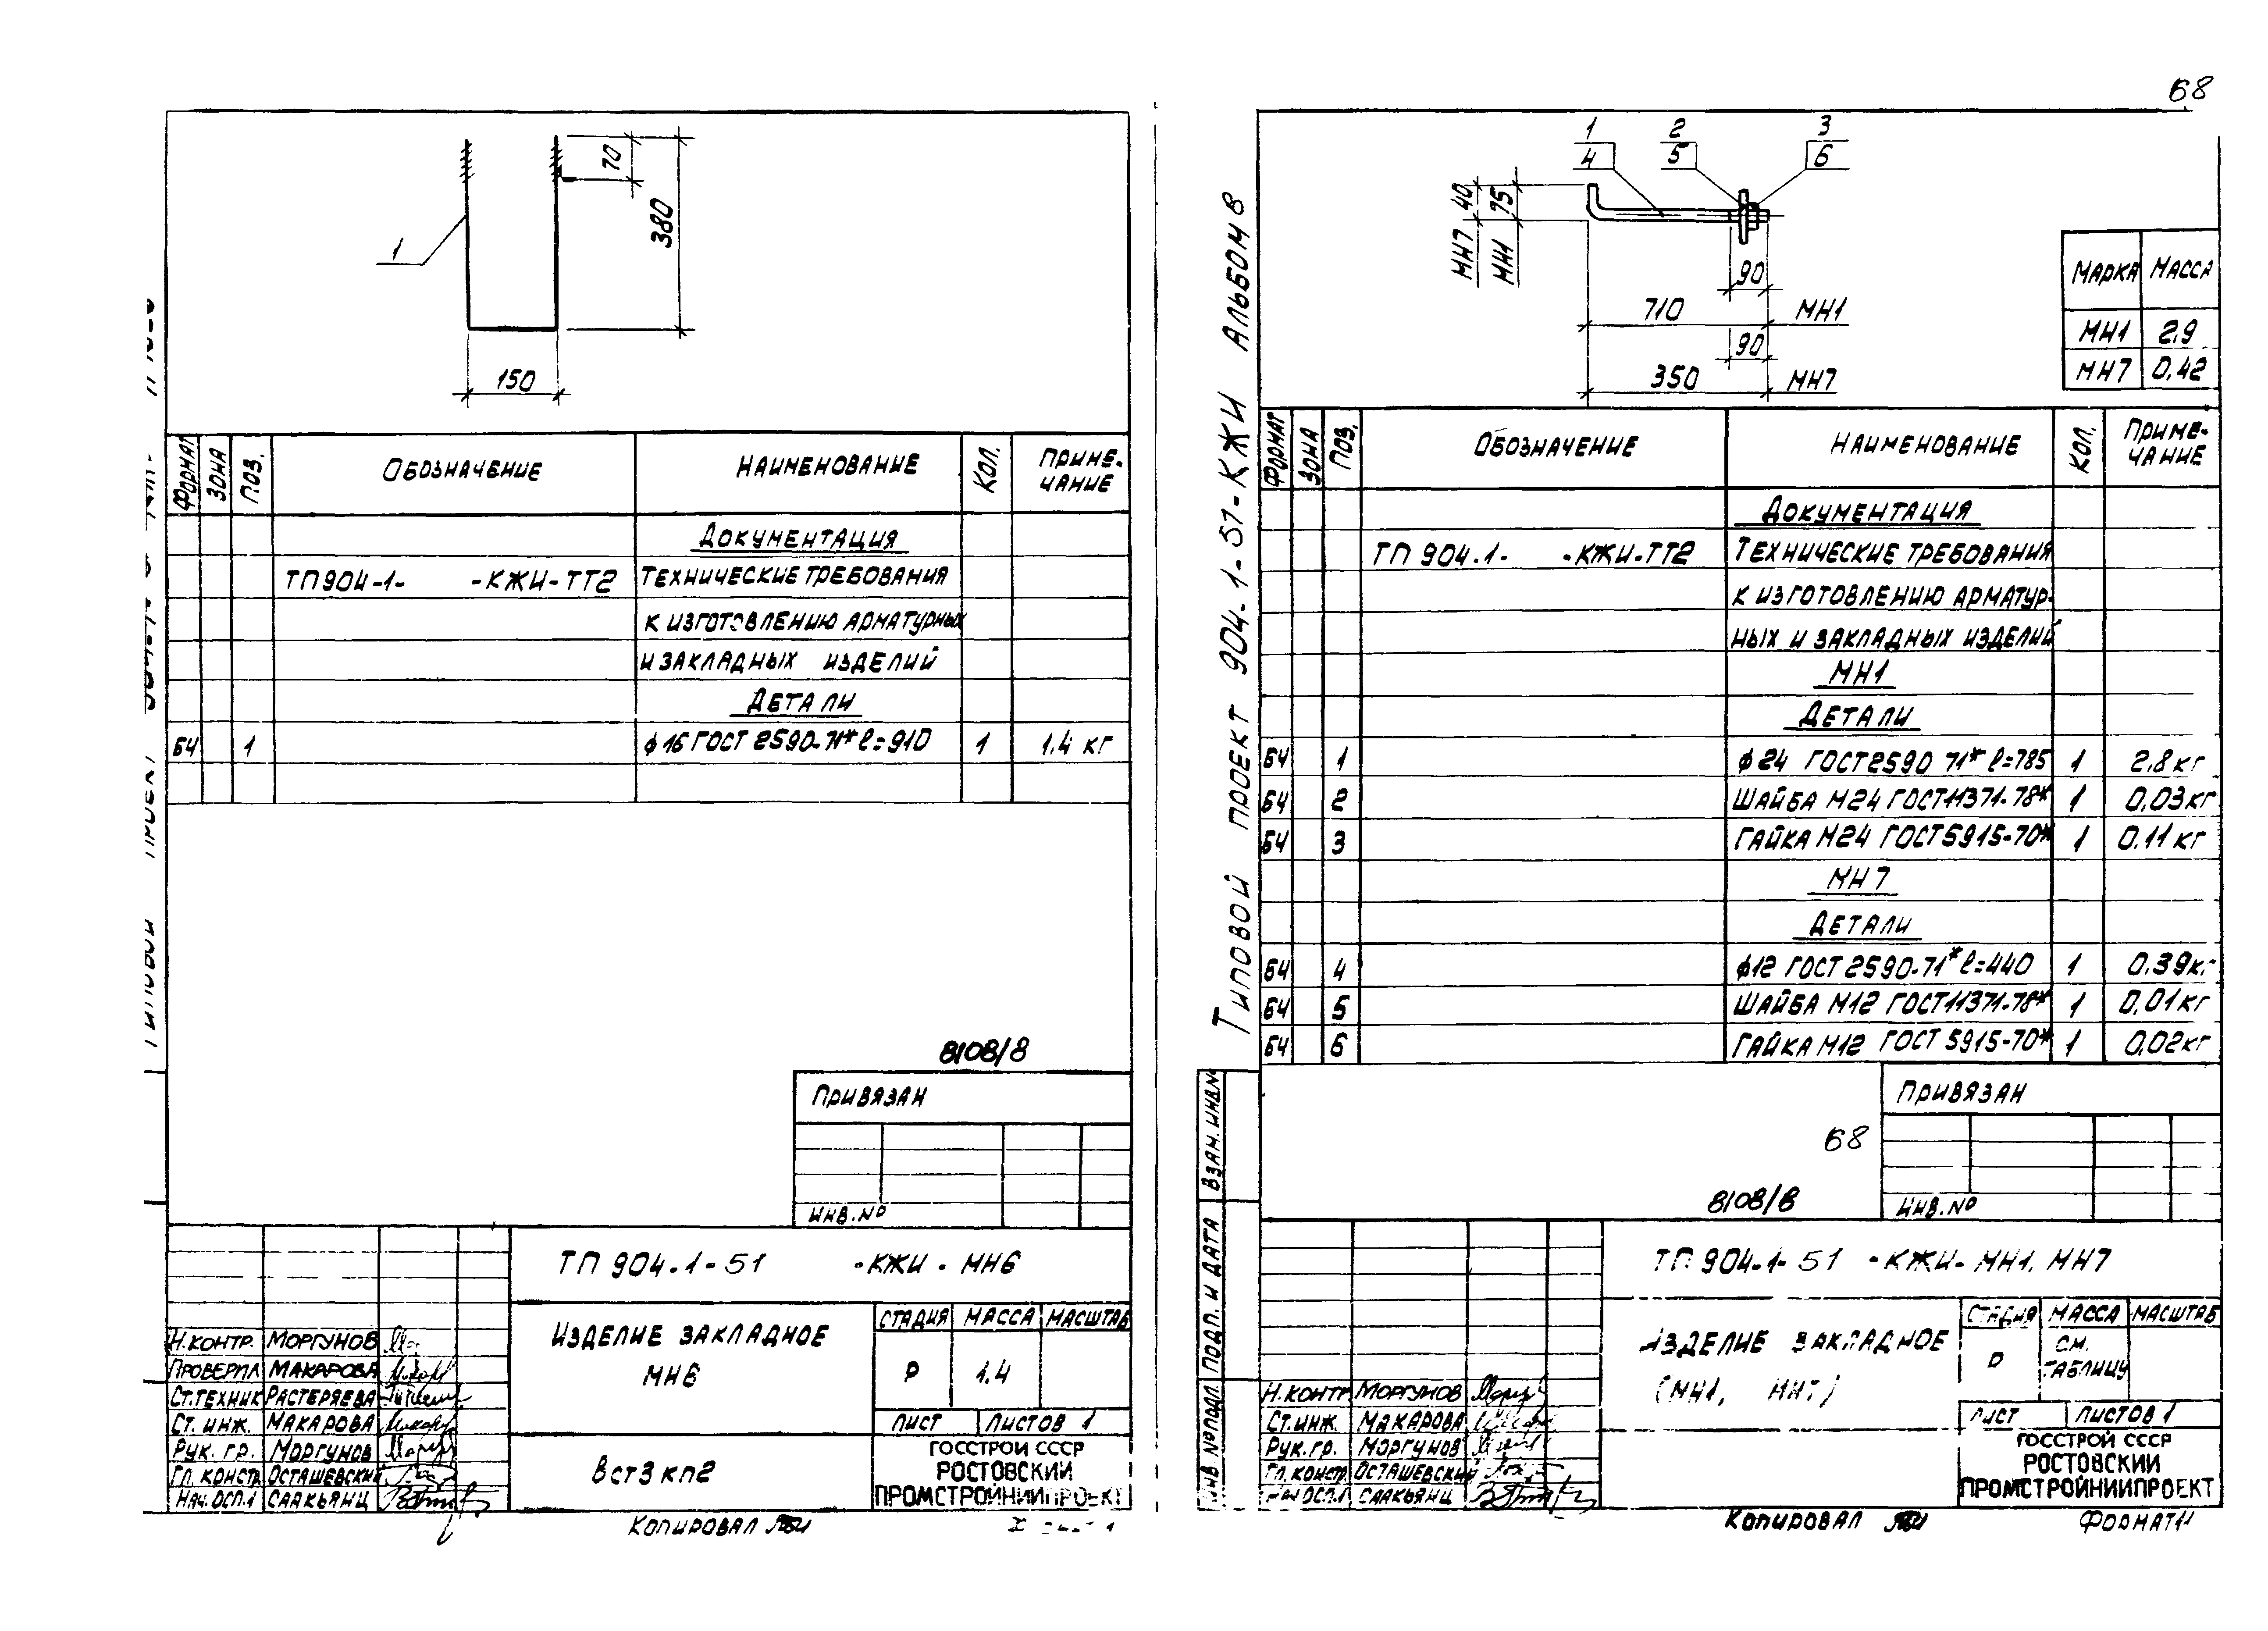 68
70
380
1
150
ФОРМАТ ЗОНА ПОЗ. ОБОЗНАЧЕНИЕ НАИМЕНОВАНИЕ КОЛ. ПРИМЕ-
ЧАНИЕ
ДОКУМЕНТАЦИЯ
ТП904-1- -КЖИ-ТТ2 ТЕХНИЧЕСКИЕ ТРЕБОВАНИЯ
К ИЗГОТОВЛЕНИЮ АРМАТУРНЫХ
И ЗАКЛАДНЫХ ИЗДЕЛИЙ
ДЕТАЛИ
БЧ 1 ϕ16 ГОСТ 2590-71* ℓ=910 1 1.4 кг
8108/8
ПРИВЯЗАН
ИНВ.№
ТП 904-1-51 -КЖИ - МН6
ИЗДЕЛИЕ ЗАКЛАДНОЕ
МН6
СТАДИЯ МАССА МАСШТАБ
Р 1.4
ЛИСТ ЛИСТОВ 1
Н.КОНТР. МОРГУНОВ
ПРОВЕРИЛ МАКАРОВА
СТ.ТЕХНИК РАСТЕРЯЕВА
СТ. ИНЖ. МАКАРОВА
РУК. ГР. МОРГУНОВ
ГЛ. КОНСТР. ОСТАШЕВСКИЙ
НАЧ.ОСП.1 СААКЬЯНЦ
Вст3кп2
ГОССТРОЙ СССР
РОСТОВСКИЙ
ПРОМСТРОЙНИИПРОЕКТ
КОПИРОВАЛ
ТИПОВОЙ ПРОЕКТ 904-1-51-КЖИ АЛЬБОМ 8
1 2 3
4 5 6
МН7 40
МН1 75
90
710 МН1
90
350 МН7
МАРКА МАССА
МН1 2.9
МН7 0.42
ФОРМАТ ЗОНА ПОЗ. ОБОЗНАЧЕНИЕ НАИМЕНОВАНИЕ КОЛ. ПРИМЕ-
ЧАНИЕ
ДОКУМЕНТАЦИЯ
ТП 904.1- -КЖИ-ТТ2 ТЕХНИЧЕСКИЕ ТРЕБОВАНИЯ
К ИЗГОТОВЛЕНИЮ АРМАТУР-
НЫХ И ЗАКЛАДНЫХ ИЗДЕЛИЙ
МН1
ДЕТАЛИ
БЧ 1 ϕ24 ГОСТ2590 71* ℓ=785 1 2,8 кг
БЧ 2 ШАЙБА М24 ГОСТ11371-78* 1 0,03кг
БЧ 3 ГАЙКА М24 ГОСТ5915-70* 1 0.11 кг
МН7
ДЕТАЛИ
БЧ 4 ϕ12 ГОСТ 2590-71* ℓ=440 1 0.39кг
БЧ 5 ШАЙБА М12 ГОСТ11371-78* 1 0,01кг
БЧ 6 ГАЙКА М12 ГОСТ 5915-70* 1 0,02кг
ПРИВЯЗАН
68
8108/8
ИНВ.№
ВЗАМ.ИНВ.№
ПОДП. И ДАТА
ИНВ №ПОДЛ.
ТП 904-1-51 -КЖИ- МН1, МН7
ИЗДЕЛИЕ ЗАКЛАДНОЕ
(МН1, МН7)
СТАДИЯ МАССА МАСШТАБ
Р СМ.
ТАБЛИЦУ
ЛИСТ ЛИСТОВ 1
Н.КОНТР МОРГУНОВ
СТ.ИНЖ. МАКАРОВА
РУК.ГР. МОРГУНОВ
ГЛ. КОНСТР. ОСТАШЕВСКИЙ
НАЧ ОСП.1 СААКЬЯНЦ
ГОССТРОЙ СССР
РОСТОВСКИЙ
ПРОМСТРОЙНИИПРОЕКТ
КОПИРОВАЛ ФОРМАТ11